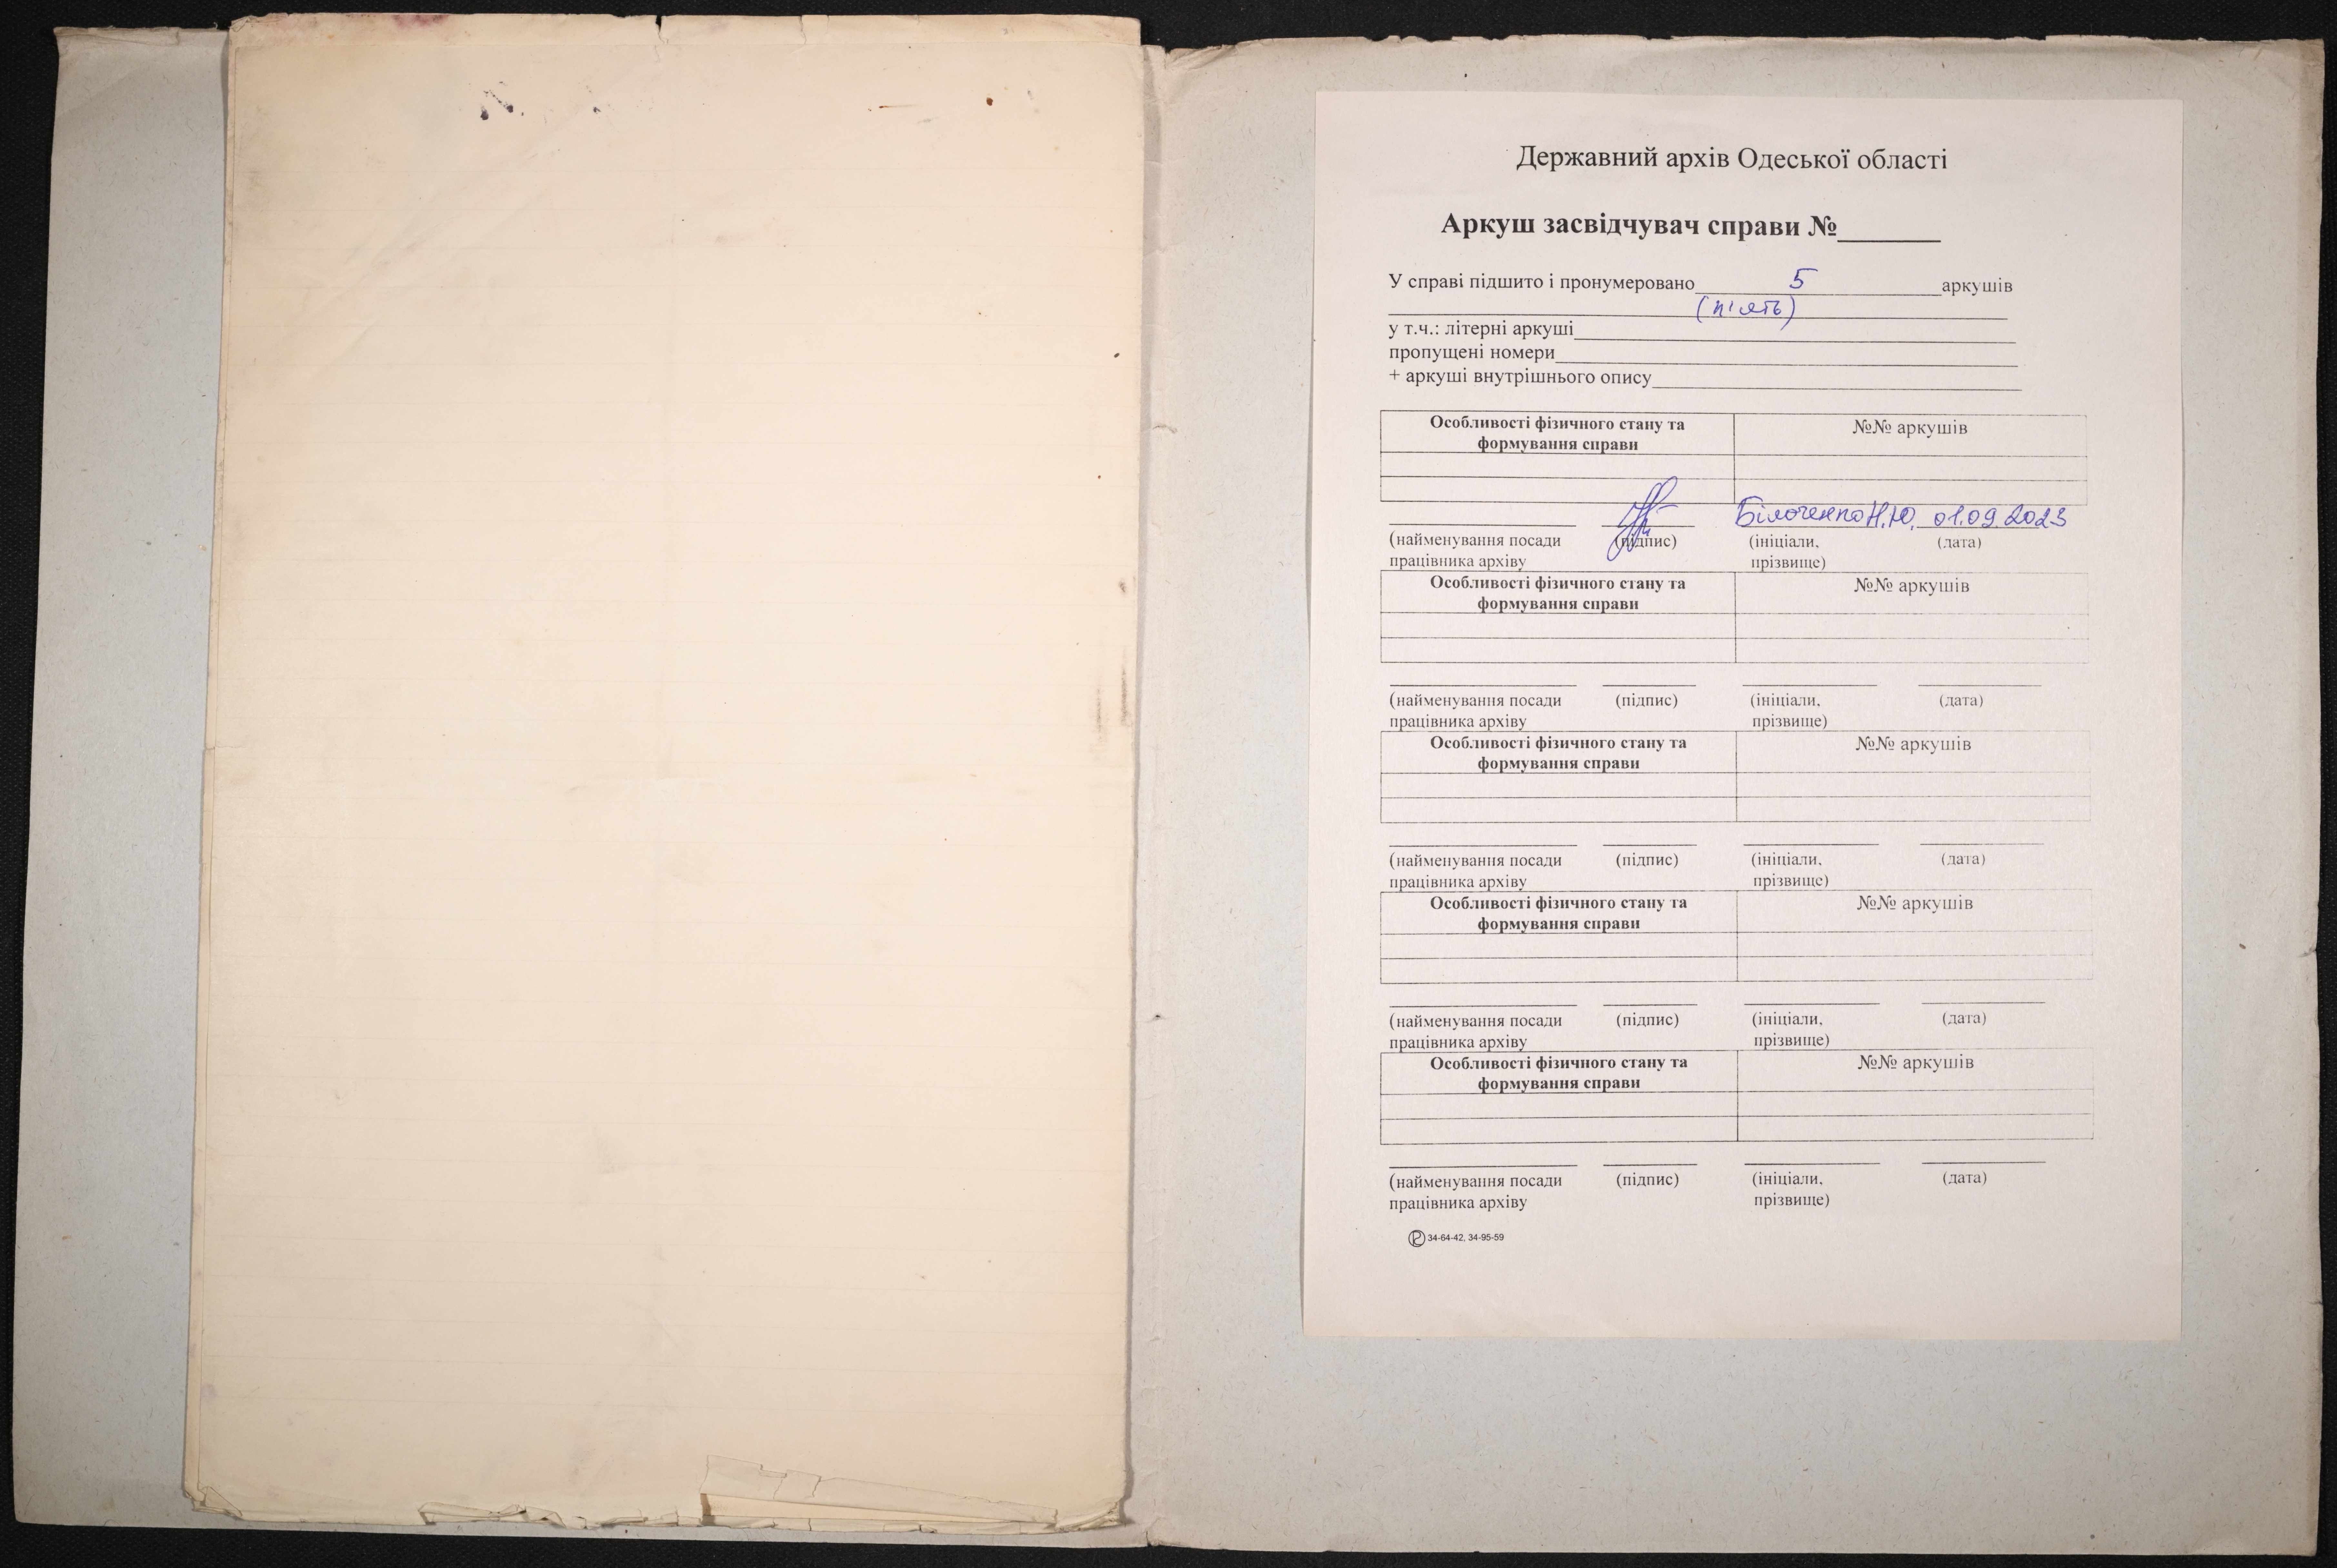 Державний архів Одеської області
Аркуш засвідчувач справи №______
У справі підшито і пронумеровано 5 аркушів
(п'ять)
у т.ч.: літерні аркуші
пропущені номери
+ аркуші внутрішнього опису
Особливості фізичного стану та №№ аркушів
формування справи
Білоченко Н.Ю. 01.09.2023
(найменування посади (підпис) (ініціали, (дата)
працівника архіву прізвище)
Особливості фізичного стану та №№ аркушів
формування справи
(найменування посади (підпис) (ініціали, (дата)
працівника архіву прізвище)
Особливості фізичного стану та №№ аркушів
формування справи
(найменування посади (підпис) (ініціали, (дата)
працівника архіву прізвище)
Особливості фізичного стану та №№ аркушів
формування справи
(найменування посади (підпис) (ініціали, (дата)
працівника архіву прізвище)
Особливості фізичного стану та №№ аркушів
формування справи
(найменування посади (підпис) (ініціали, (дата)
працівника архіву прізвище)
34-64-42, 34-95-59